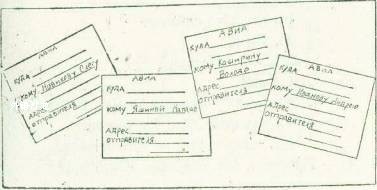 АВИА
куда
кому Иванкову Олегу
адрес
отправителя
АВИА
кому Яшиной
адрес
отправителя
АВИА
куда
кому Каширину
Володе
адрес
отправителя
АВИА
куда
кому Иванову Андрею
адрес
отправителя